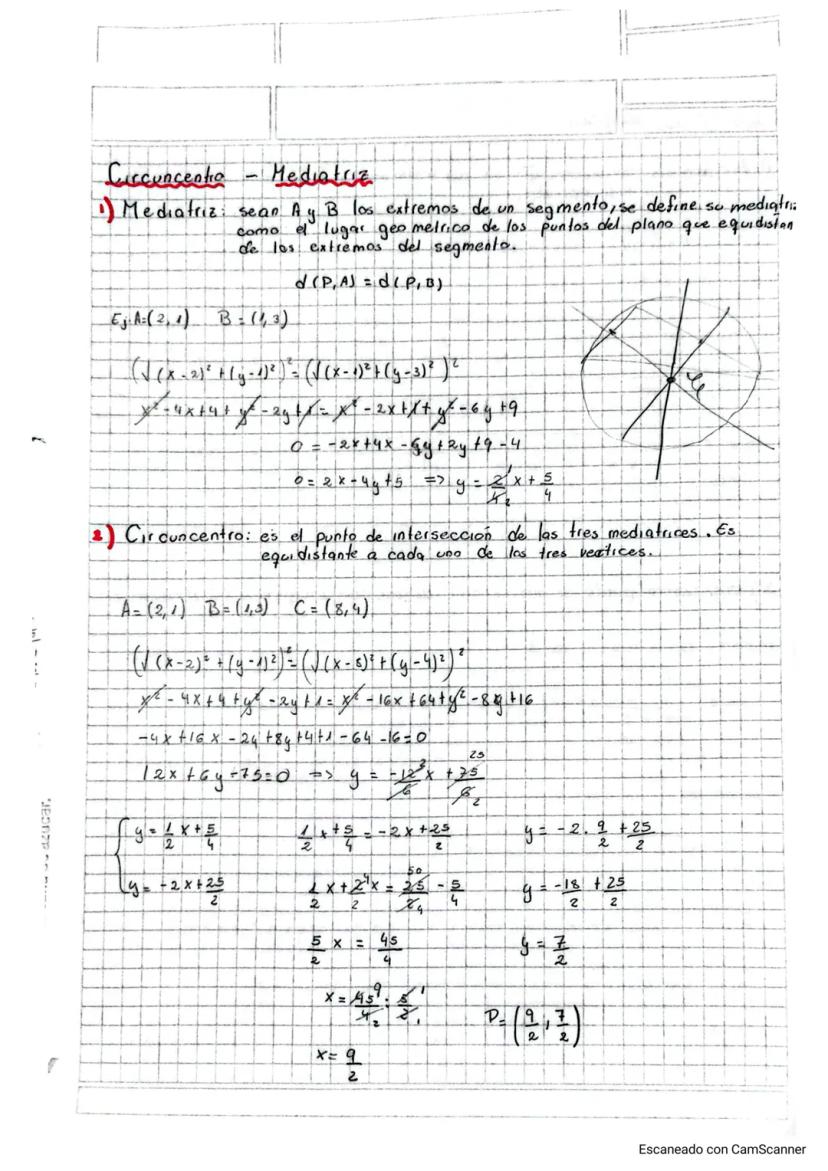 Circuncentro - Mediatriz
1) Mediatriz: sean A y B los extremos de un segmento, se define su mediatri
como el lugar geometrico de los puntos del plano que equidistan
de los extremos del segmento.
d(P,A) = d(P,B)
Ej: A=(2,1) B=(1,3)
(√(x-2)²+(y-1)²)² = (√(x-1)²+(y-3)²)²
x²-4x+4+y²-2y+1 = x²-2x+1+y²-6y+9
0 = -2x+4x-6y+2y+9-4
0 = 2x-4y+5 => y = 2/4 1/2 x + 5/4
2) Circuncentro: es el punto de intersección de las tres mediatrices. Es
equidistante a cada uno de los tres vertices.
A=(2,1) B=(1,3) C=(8,4)
(√(x-2)²+(y-1)²)² = (√(x-8)²+(y-4)²)²
x²-4x+4+y²-2y+1 = x²-16x+64+y²-8y+16
-4x+16x-2y+8y+4+1-64-16=0
12x+6y-75=0 => y = -12/6 2 x + 75/6 25/2
y = 1/2 x + 5/4 1/2 x + 5/4 = -2x + 25/2 y = -2 . 9/2 + 25/2
y = -2x + 25/2 1/2 x + 2/2 4 x = 25/2 50/4 - 5/4 y = -18/2 + 25/2
5/2 x = 45/4 y = 7/2
x = 45/4 9/2 : 5/2 1/1 P = (9/2, 7/2)
x = 9/2
Escaneado con CamScanner